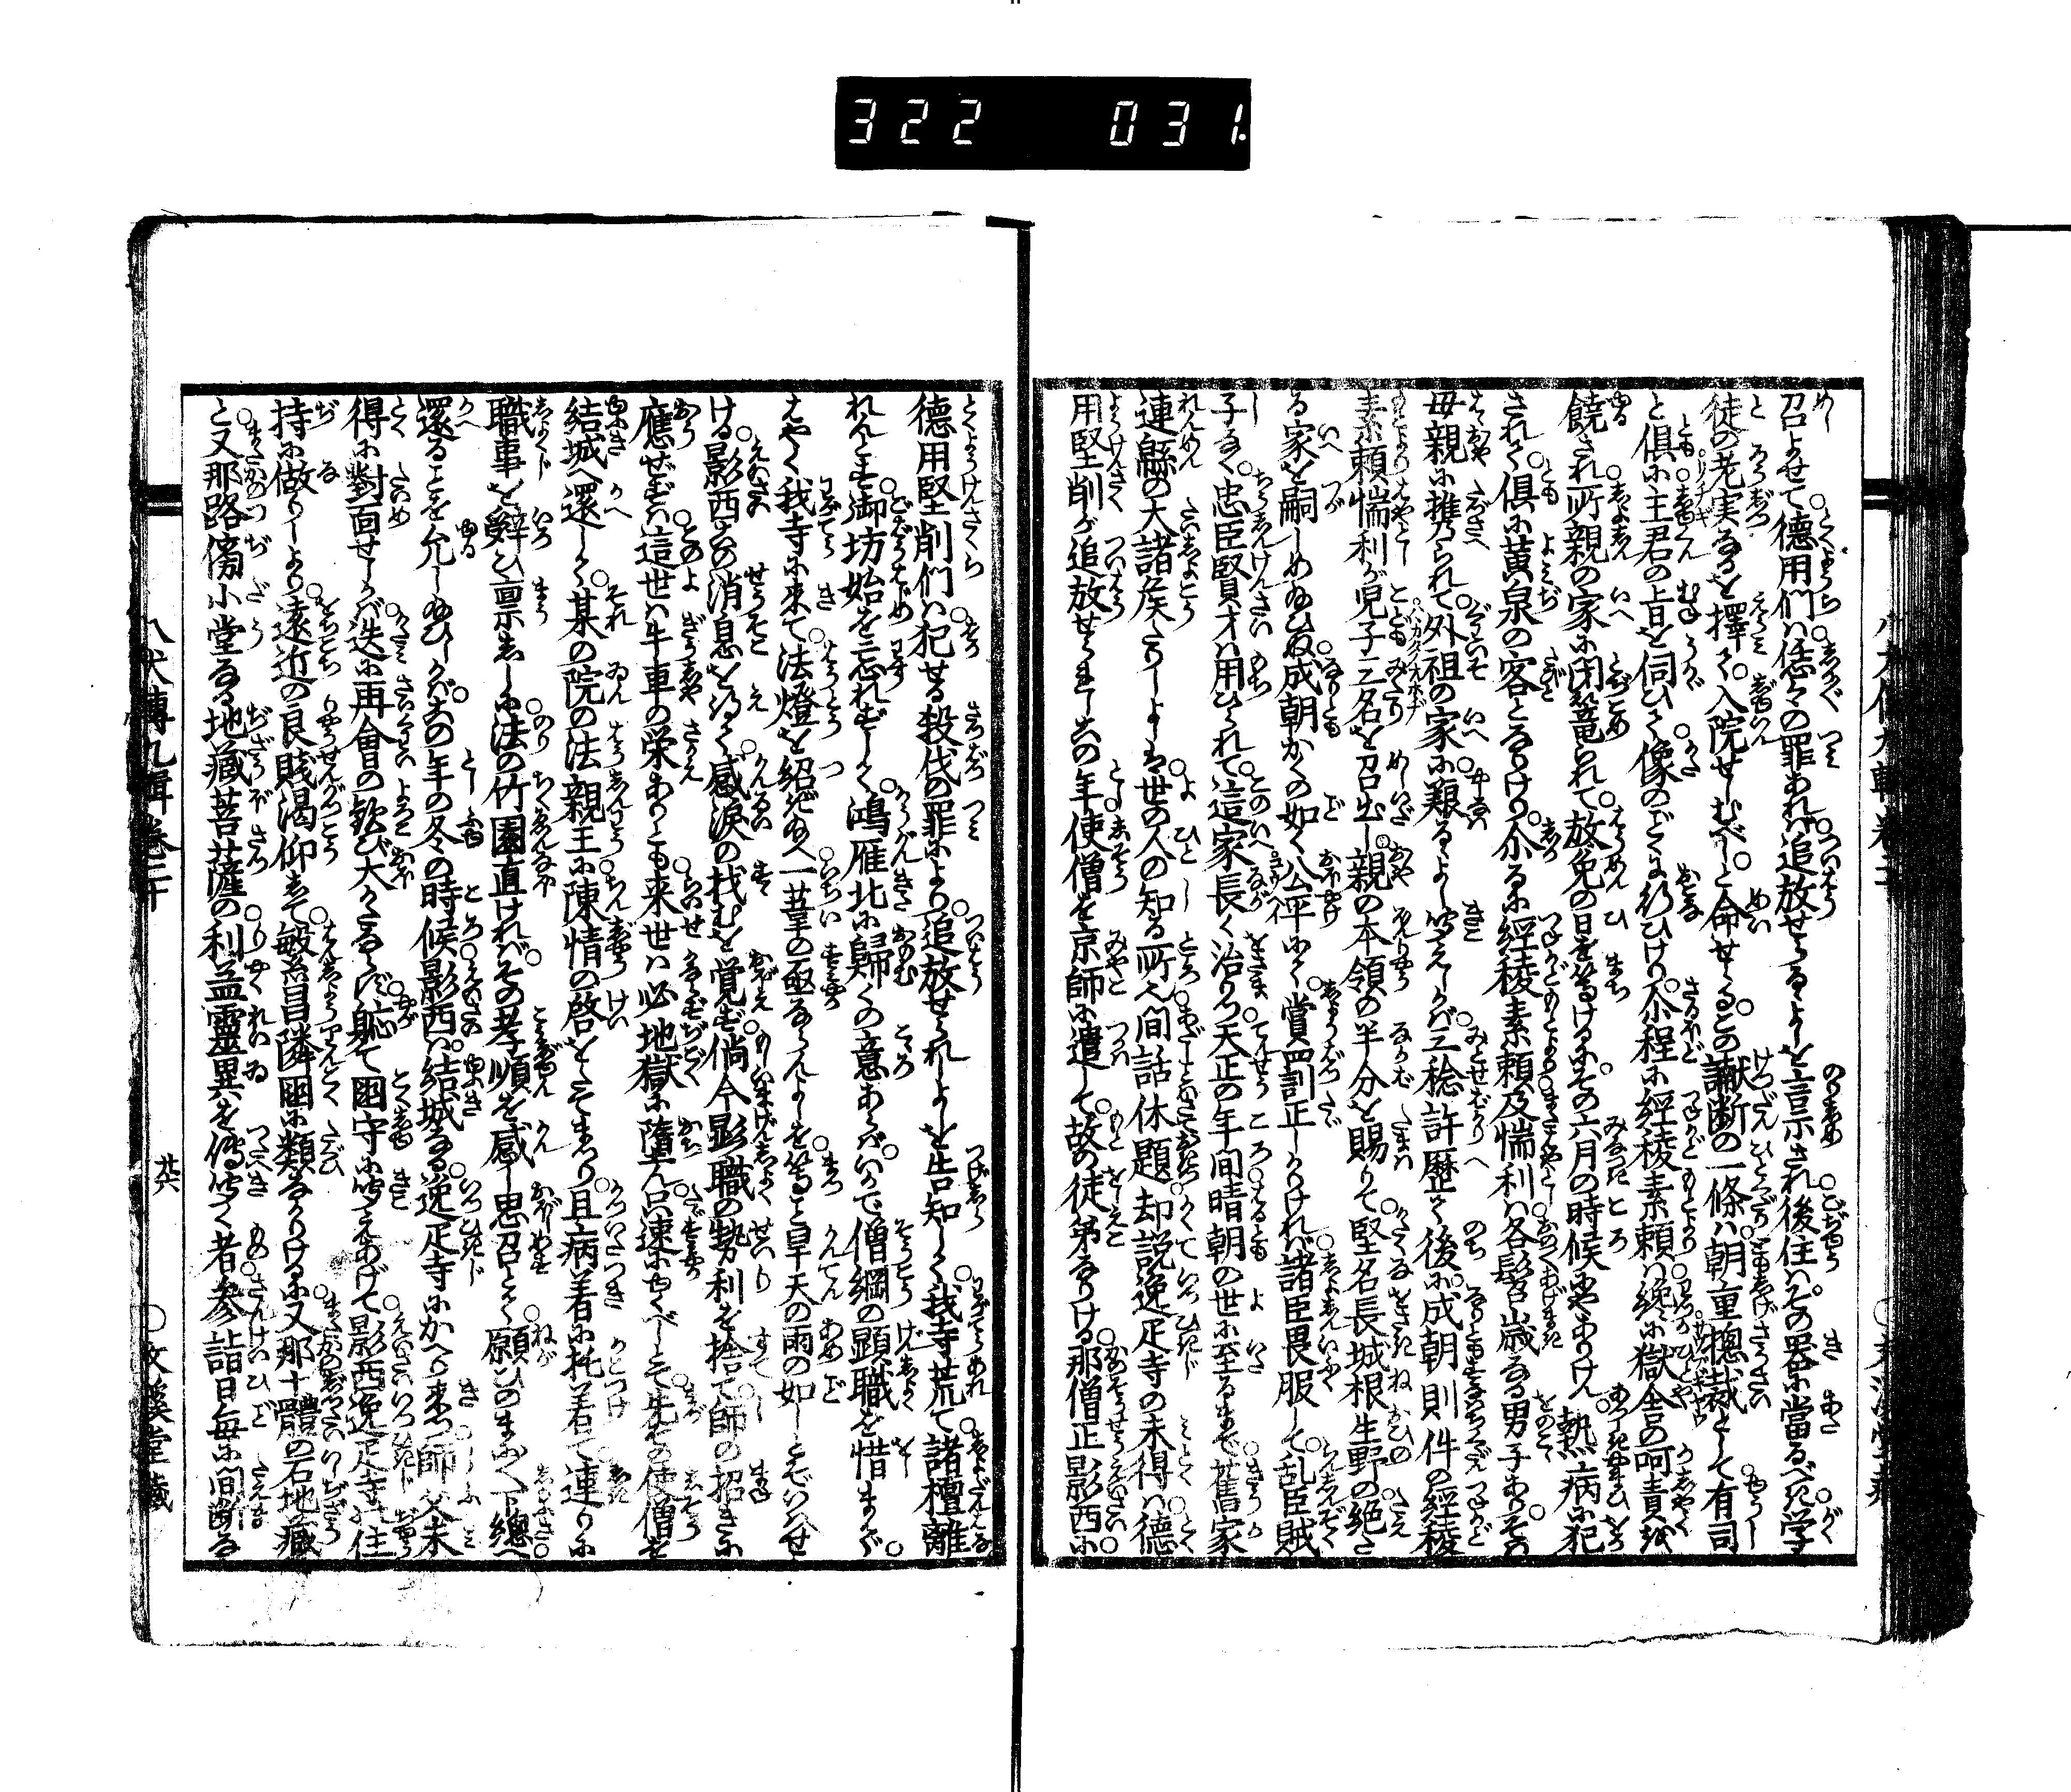 322 031
召よせて德用們は恁々の罪あれば追放せらるゝよしを言示され後住はその器に當るべき学
徒の老実なるを擇て入院せしむべしと命せらるこの讞断の一條は朝重摠裁として有司
と俱に主君の上旨を伺ひて像のごとくに行ひけり尒程に経稜素頼は纔に獄舎の呵責を
饒され所親の家に閉篭られて放免の日を等ける程にその六月の時候にやありけん執ば病に犯
されて俱に黄泉の客となりけり尒るに経稜素頼及惴利は各髫歳なる男子ありその
母親に推乃られて外祖の家に艱るよし聞えしかば三稔許歴て後に成朝則件の経稜
素頼惴利が児子三名を召出し親の本領の半分を賜りて堅名長城根生野の絶た
る家を嗣しめ給ひぬ成朝かくの如く公平にて賞罰正しかりければ諸臣畏服して乱臣賊
子なく忠臣賢才は用ひられて這家長く治りつ天正の年間晴朝の世に至るまで舊家
連緜の大諸矦たりしよしは世の人の知る所也間話休題却説逸疋寺の未得は德
用堅削が追放せられし其の年使僧を京師に遣して故の徒弟なりける那僧正影西に
德用堅削們は犯せる殺伐の罪により追放せられしよしを告知して我寺荒て諸檀離
れんとす御坊始を忘れずして鴻雁北に歸るの意あらばいかで僧綱の顕職を惜まで
はやく我寺に来て法燈を紹ぎ給へ一葦の亟ならんよしを等こと旱天の雨の如しとぞいはせ
ける影西其の消息を得て感涙の找むを覚ず倘今影職の勢利を捨て師の招きに
應せずは這世は牛車の栄ありとも来世は必地獄に墮ん只速にゆくべしとて先その使僧を
結城へ還して某の院の法親王に陳情の啓をたてまつり且病着に托着て連りに
職事を辭ひ禀ししに法の竹園直ければその孝順を感じ思召とて願ひのまに〳〵下總へ
還ることを允し給ひしかば其の年の冬の時候影西は結城なる逸疋寺にかへり来つ師父未
得に對面せしかば迭に再會の歓び大かたならず軈て國守に聞えあげて影西逸疋寺の住
持に做りしより遠近の良賤渇仰して敏系昌隣國に類なかりけるに又那十體の石地藏
と又那路傍小堂なる地藏菩薩の利益靈異を傳聞く者參詣日毎に間断なる
八犬傳九輯卷三十
共
〇文溪堂藏